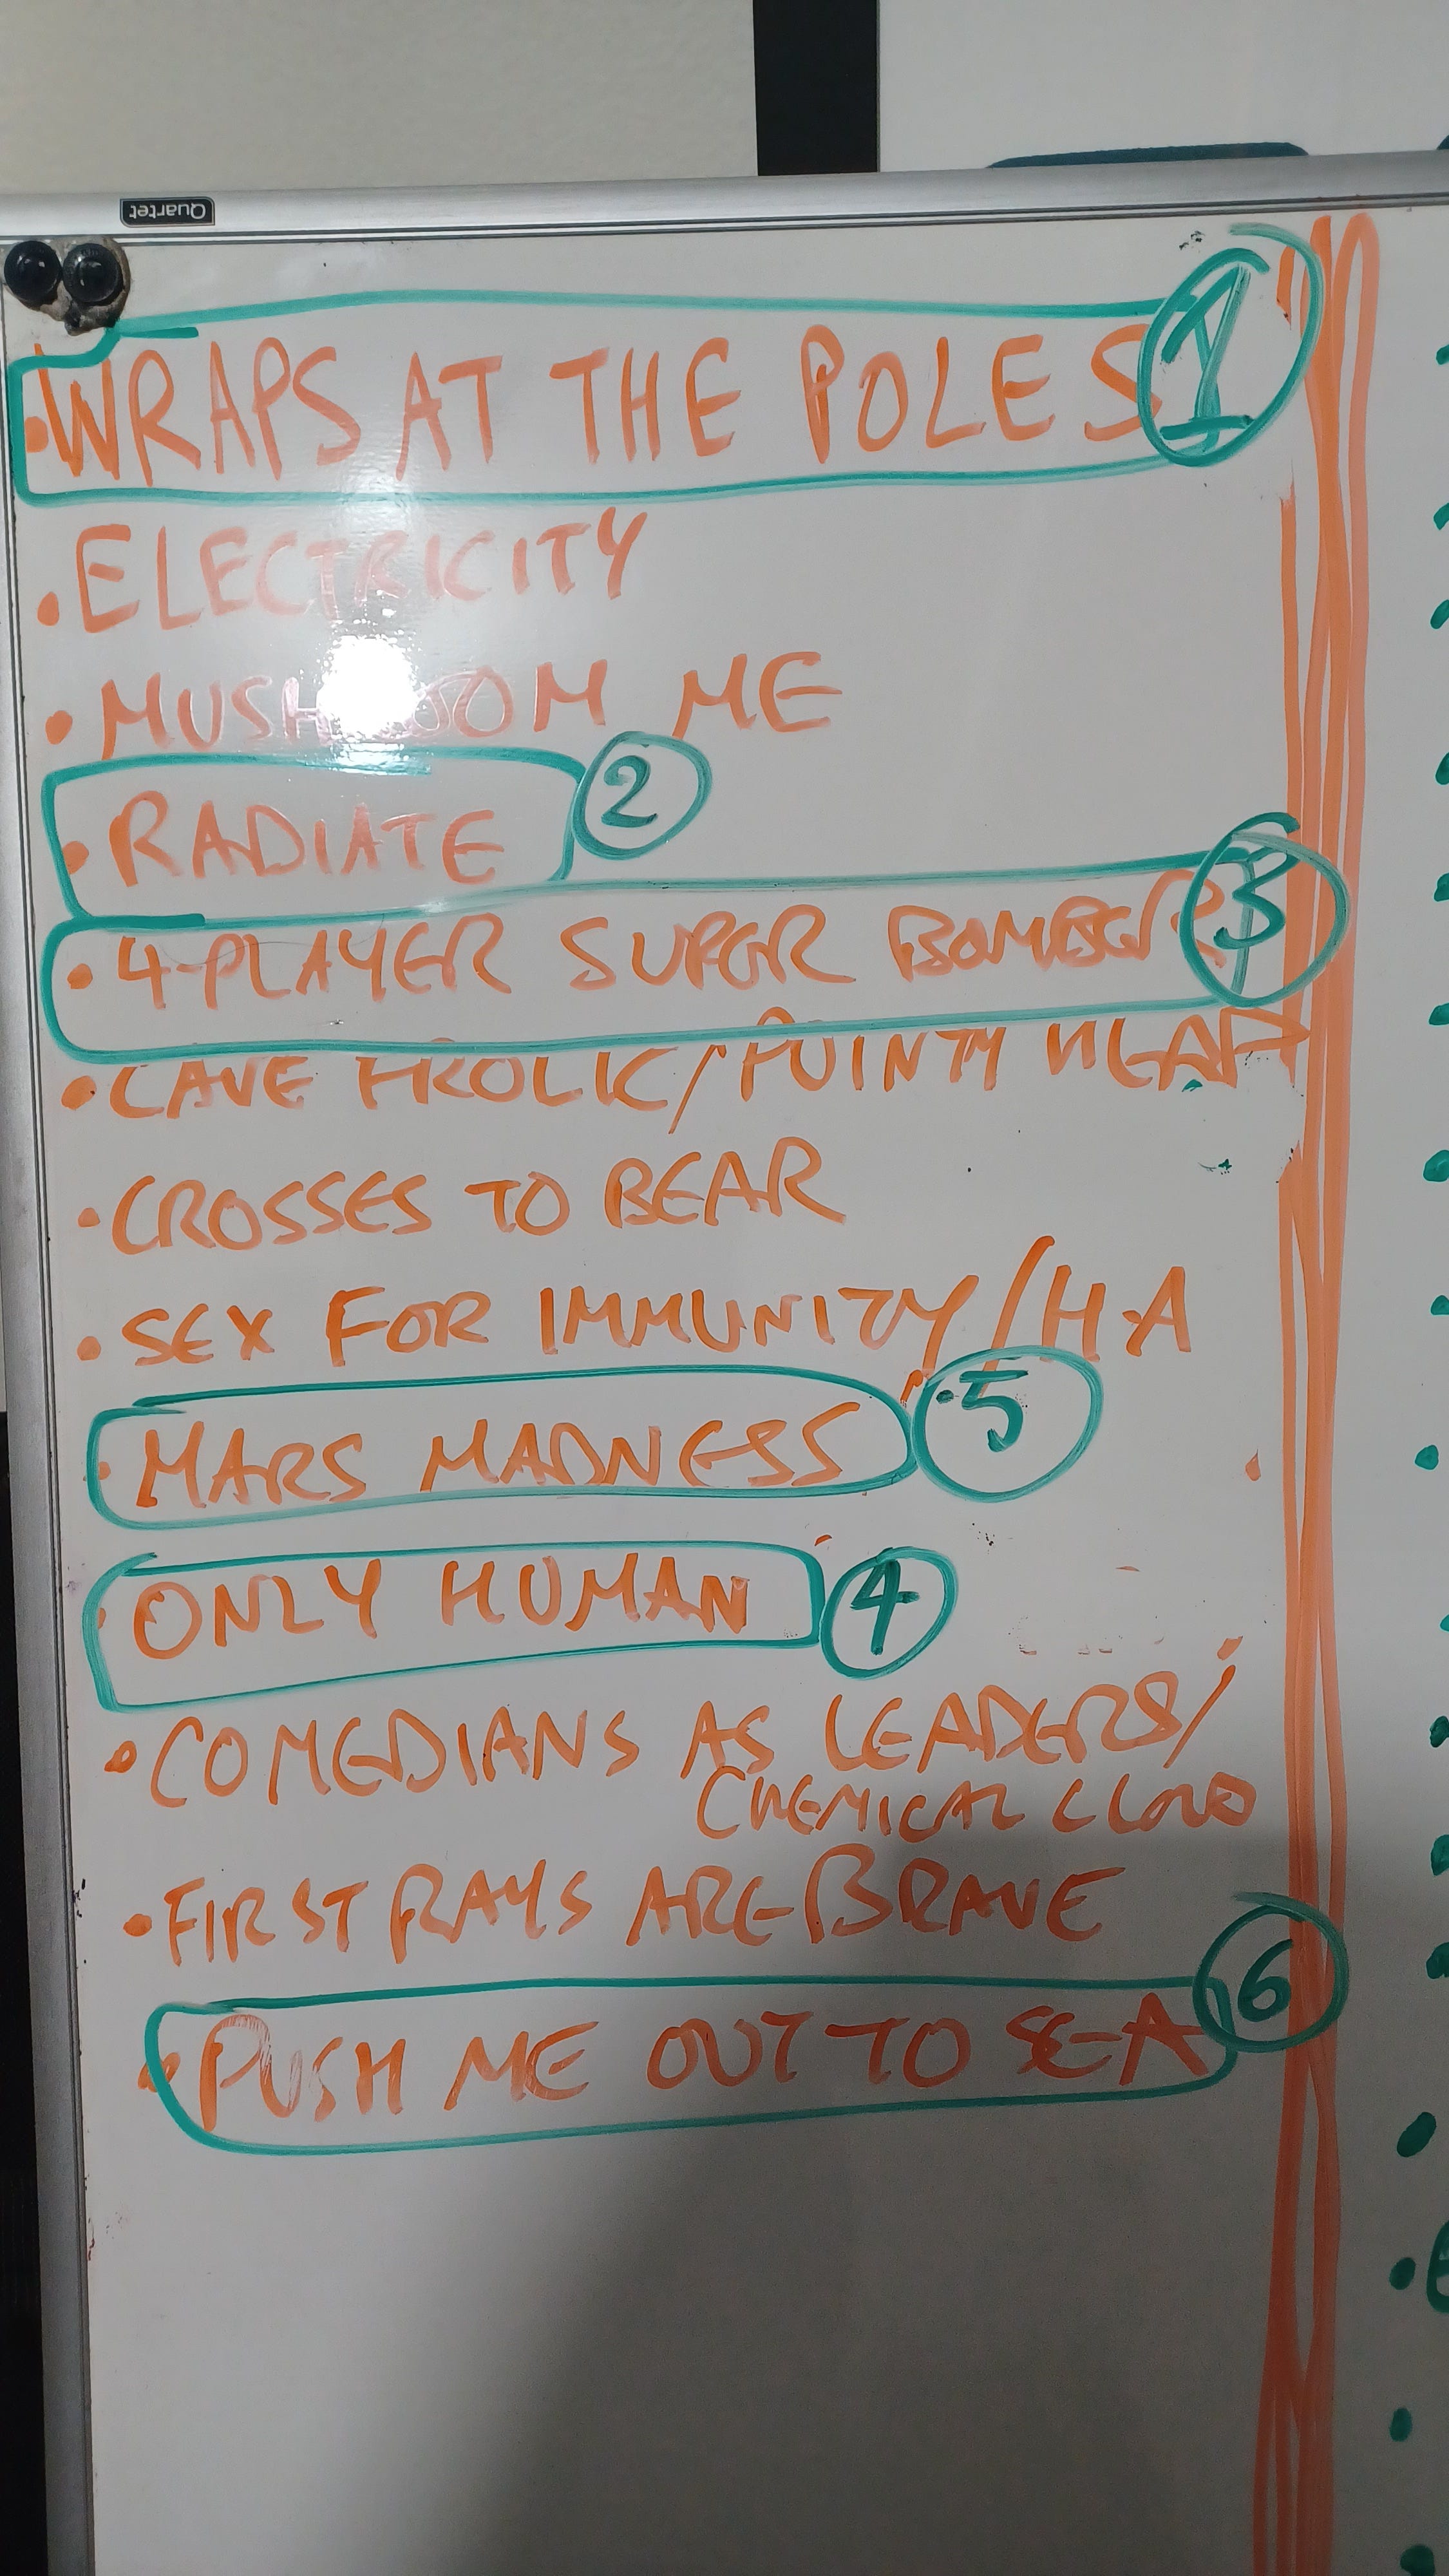 Quartet
• WRAPS AT THE POLES 1
• ELECTRICITY
• MUSHROOM ME
• RADIATE 2
• 4-PLAYER SUPER BOMBER 3
• CAVE FROLIC/POINTY HEAD
• CROSSES TO BEAR
• SEX FOR IMMUNITY/H-A
• MARS MADNESS 5
• ONLY HUMAN 4
• COMEDIANS AS LEADERS/
CHEMICAL CLOUD
• FIRST RAYS ARE BRAVE
• PUSH ME OUT TO SEA 6